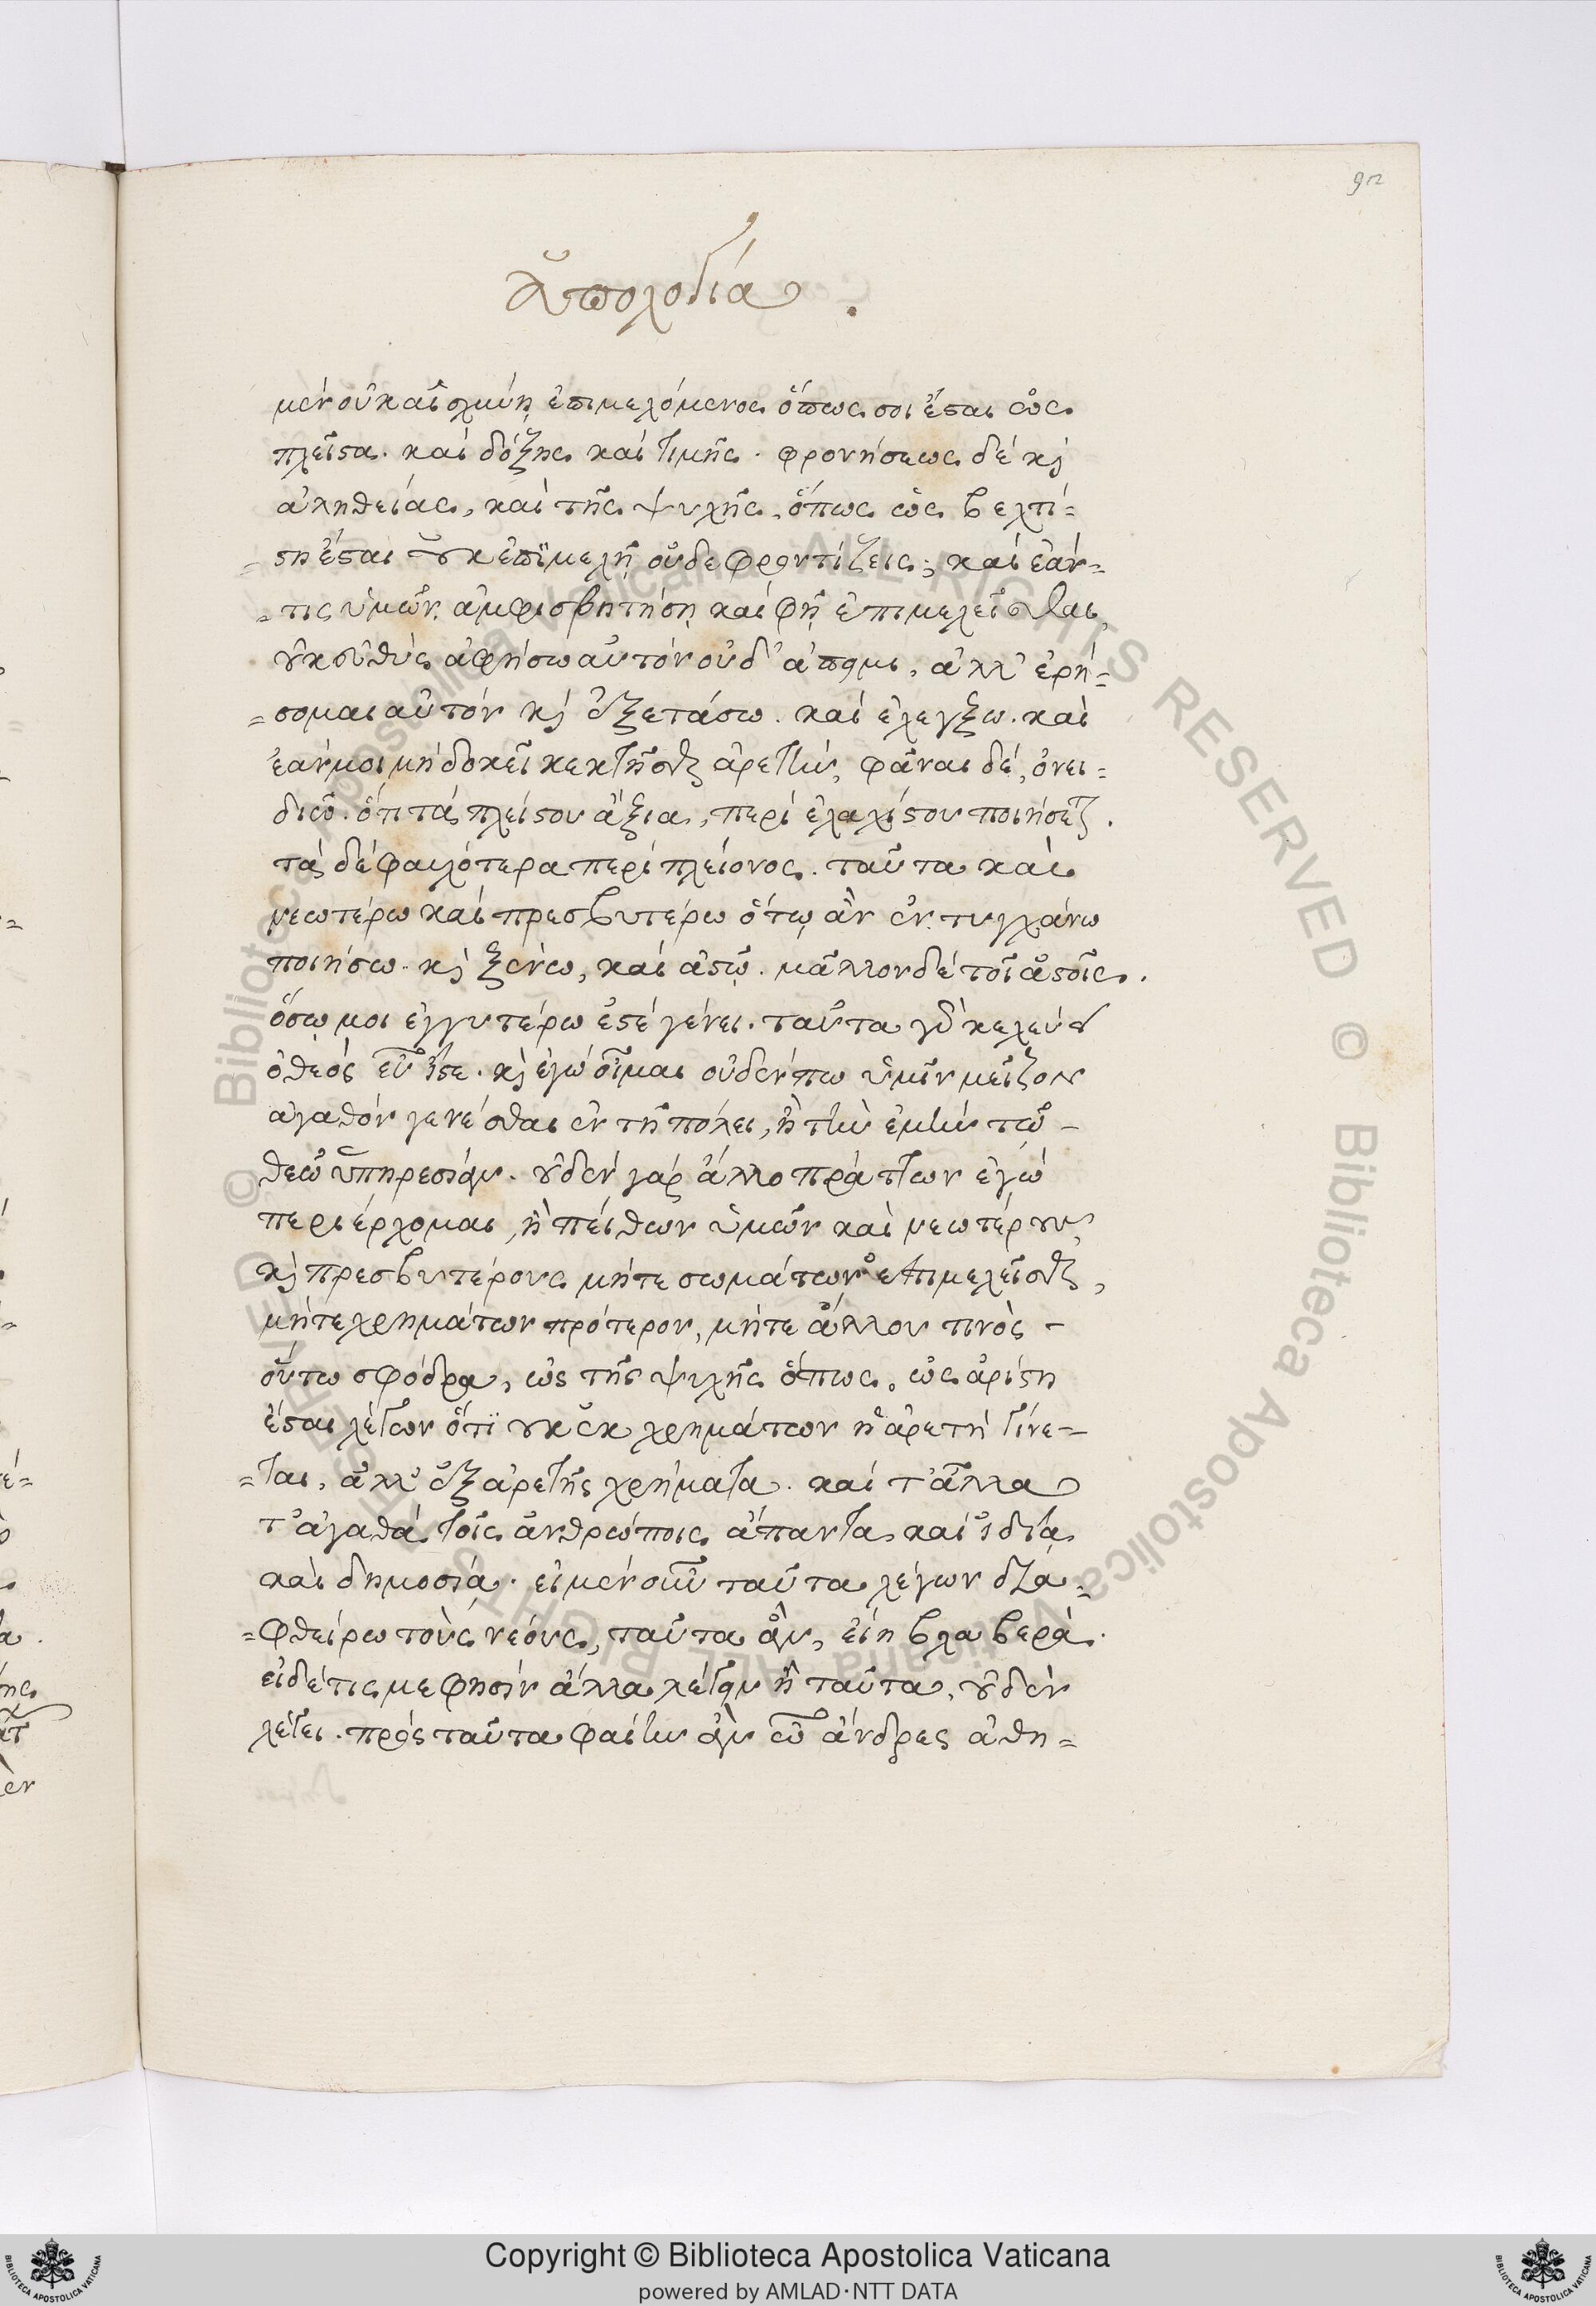 92
Ἀπολογία.
μὲν οὐκ αἰσχύνῃ ἐπιμελόμενος ὅπως σοι ἔσται ὡς
πλεῖστα. καὶ δόξης καὶ τιμῆς. φρονήσεως δέ καὶ
ἀληθείας, καὶ τῆς ψυχῆς, ὅπως ὡς βελτί=
=στη ἔσται οὐκ ἐπϊμελῇ οὐδε φροντίζεις; καὶ ἐάν=
=τις ὑμῶν, ἀμφισβητήσῃ καὶ φῇ ἐπιμελεῖσθαι,
οὐκ εὐθὺς ἀφήσω αὐτόν οὐδ' ἄπειμι, ἀλλ' ἐρή=
=σομαι αὐτόν καὶ ἐξετάσω. καὶ ἐλεγξω. καὶ
ἐάν μοι μή δοκεῖ κεκτῆσθαι ἀρετὴν, φάναι δέ, ὀνει=
διῶ. ὅτι τά πλείστου ἄξια, περὶ ἐλαχίστου ποιήσεται.
τὰ δέ φαυλότερα περὶ πλείονος. ταῦτα καὶ
νεωτέρω καὶ πρεσβυτέρω ὅτῳ ἂν ἐν τυγχάνω
ποιήσω. καὶ ξένω, καὶ ἀστῷ. μᾶλλον δέ τοῖ ἀστοῖς.
ὅσῳ μοι ἐγγυτέρω ἐστέ γένει. ταῦτα γὰρ κελεύει
ὁ θεός εὖ ἴστε. καὶ ἐγώ οἶμαι οὐδέν πω ὑμῖν μεῖζον
ἀγαθόν γενέσθαι ἐν τῇ πόλει, ἢ τὴν ἐμὴν τῷ -
θεῷ ὑπηρεσίαν. οὐδέν γάρ ἄλλο πράττων ἐγώ
περιέρχομαι, ἢ πείθων ὑμῶν καὶ νεωτέρους
καὶ πρεσβυτέρους μήτε σωμάτων ἐπιμελεῖσθαι,
μήτε χρημάτων πρότερον, μήτε ἄλλου τινὸς -
οὕτω σφόδρα, ὡς τῆς ψυχῆς ὅπως, ὡς ἀρίστη
ἔσται λέγων ὅτϊ οὐκ ἐκ χρημάτων ἡ ἀρετὴ γίνε-
=ται, ἀλλ' ἐξ ἀρετῆς χρήματα. καὶ τ' ἄλλα
τ' ἀγαθά τοῖς ἀνθρώποις ἅπαντα καὶ ἰδίᾳ
καὶ δημοσίᾳ. εἰ μέν οὖν ταῦτα λέγων δια=
=φθείρω τοὺς νέους, ταῦτα ἂν, εἴη βλαβερὰ.
εἰ δέ τις με φησίν ἄλλα λέγειν ἢ ταῦτα, οὐδὲν
λέγει. πρὸς ταῦτα φαίην ἂν ὦ ἄνδρες ἀθη=
Copyright © Biblioteca Apostolica Vaticana
powered by AMLAD·NTT DATA
© Biblioteca Apostolica Vaticana ALL RIGHTS RESERVED © Biblioteca Apostolica Vaticana ALL RIGHTS RESERVED
BIBLIOTECA APOSTOLICA VATICANA
BIBLIOTECA APOSTOLICA VATICANA